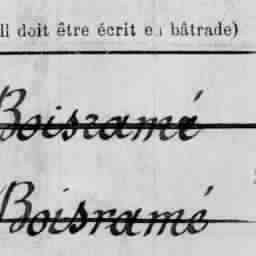 Il doit être écrit en bâtrade)
Boisramé
Boisramé